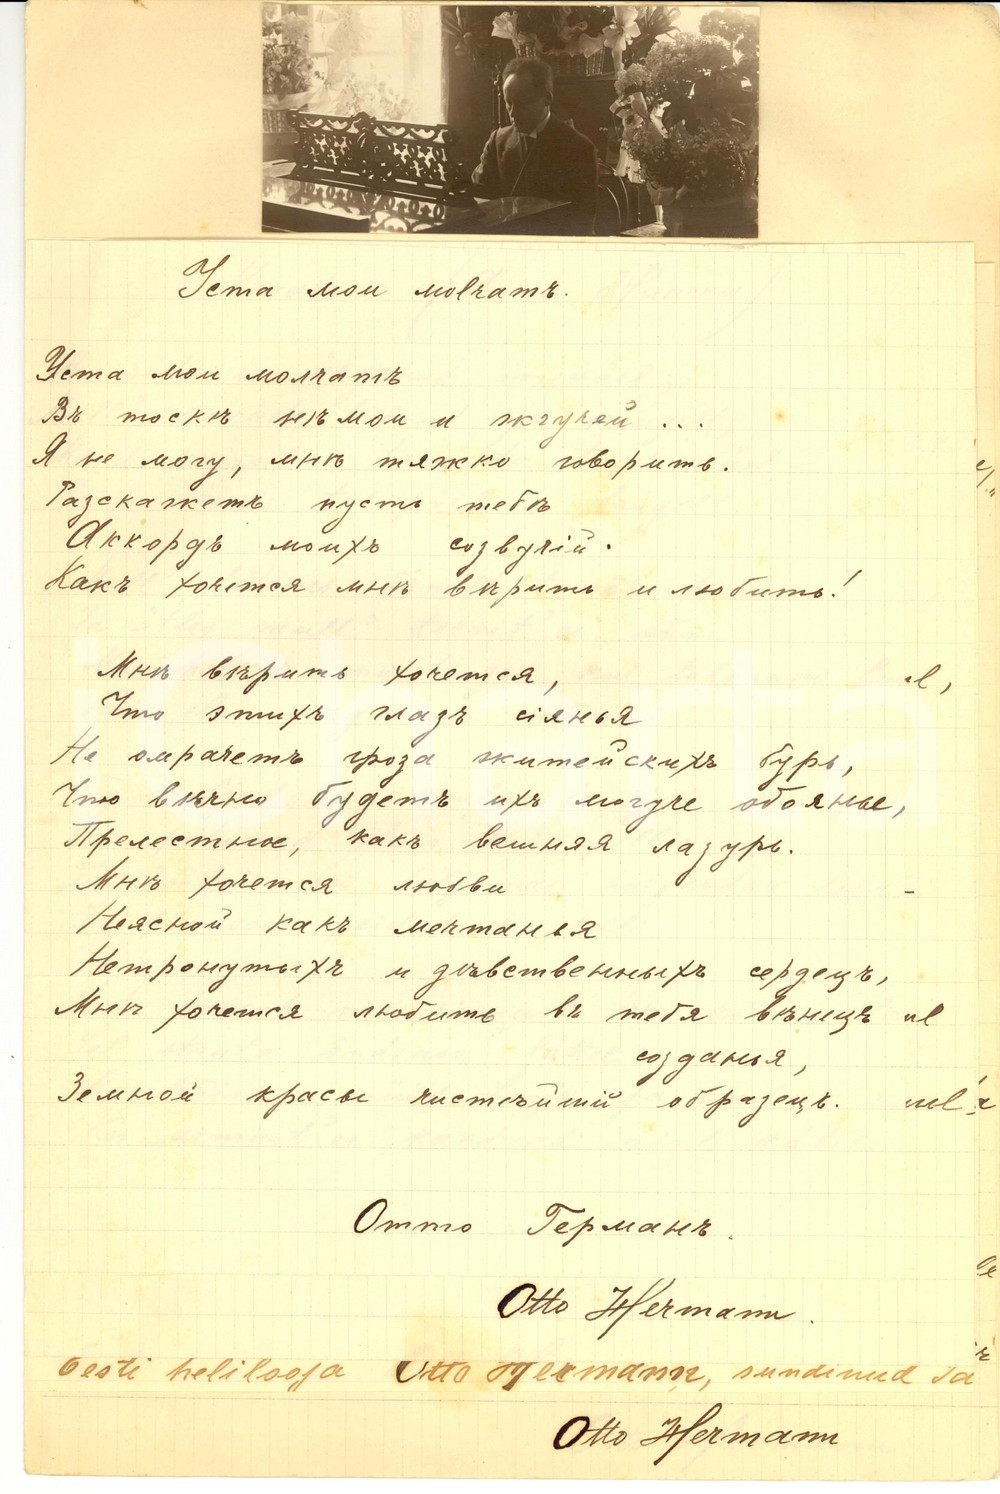 Уста мои молчатъ.
Уста мои молчатъ
Въ тоскѣ нѣмой и жгучей ...
Я не могу, мнѣ тяжко говорить.
Разскажетъ пусть тебѣ
Аккордъ моихъ созвучій.
Какъ хочется мнѣ вѣрить и любить!
Мнѣ вѣрить хочется,
Что этихъ глазъ сіянья
Не омрачетъ гроза житейскихъ бурь,
Что вѣчно будетъ ихъ могуче обоянье,
Прелестное, какъ вешняя лазурь.
Мнѣ хочется любви
Неясной какъ мечтанья
Нетронутыхъ и дѣвственныхъ сердецъ,
Мнѣ хочется любить въ тебя вѣнецъ
созданья,
Земной красы чистѣйшій образецъ.
Отто Германъ.
Otto Hermann.
Eesti helilooja Otto Hermann, sündinud sa
Otto Hermann